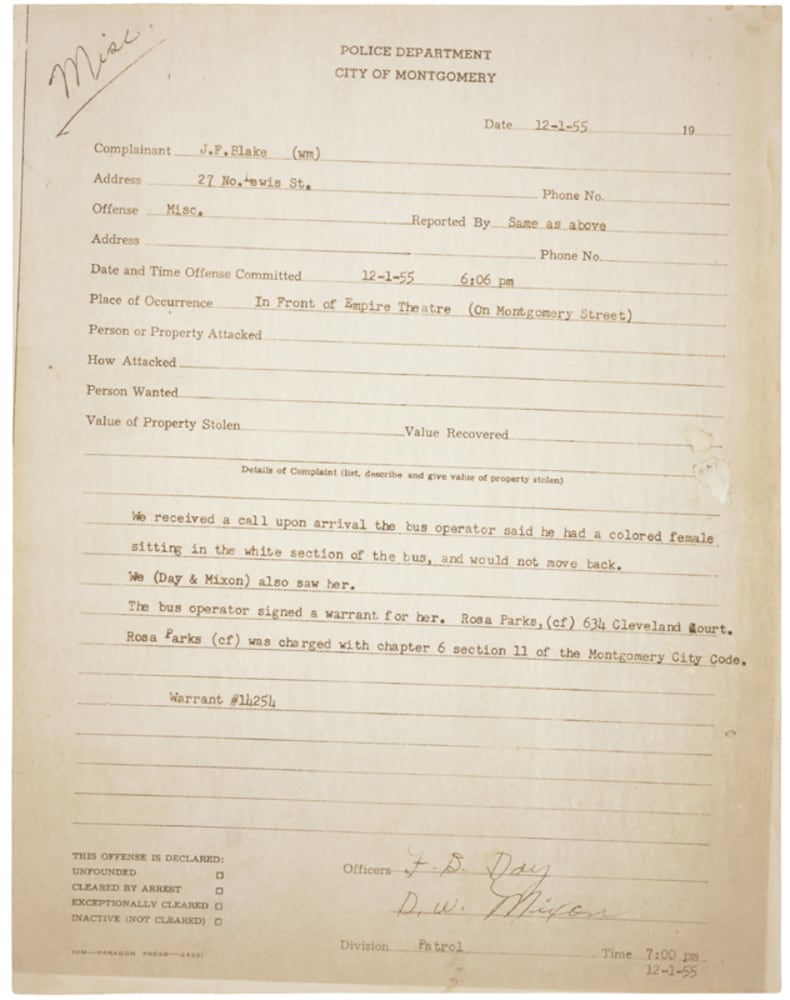 Misc.
POLICE DEPARTMENT
CITY OF MONTGOMERY
Date 12-1-55 19
Complainant J.F.Blake (wm)
Address 27 No.Lewis St.
Phone No.
Offense Misc. Reported By Same as above
Address Phone No.
Date and Time Offense Committed 12-1-55 6:06 pm
Place of Occurrence In Front of Empire Theatre (On Montgomery Street)
Person or Property Attacked
How Attacked
Person Wanted
Value of Property Stolen Value Recovered
Details of Complaint (list, describe and give value of property stolen)
We received a call upon arrival the bus operator said he had a colored female
sitting in the white section of the bus, and would not move back.
We (Day & Mixon) also saw her.
The bus operator signed a warrant for her. Rosa Parks,(cf) 634 Cleveland Court.
Rosa Parks (cf) was charged with chapter 6 section 11 of the Montgomery City Code.
Warrant #14254
THIS OFFENSE IS DECLARED:
UNFOUNDED
CLEARED BY ARREST
EXCEPTIONALLY CLEARED
INACTIVE (NOT CLEARED)
Officers F. B. Day
D. W. Mixon
Division Patrol
Time 7:00 pm
12-1-55
10M—PARAGON PRESS